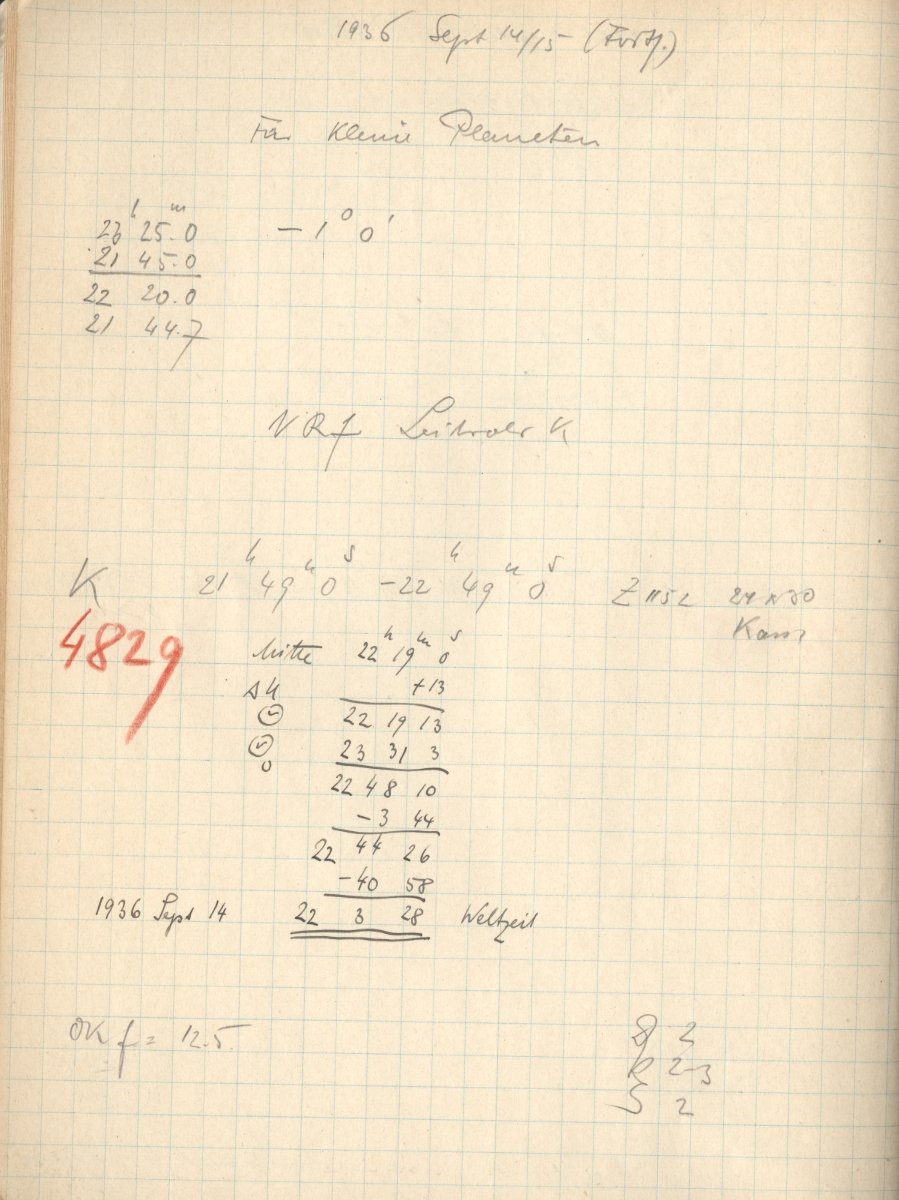 1936 Sept 14/15 (Forts.)
Für Kleine Planeten
h m
23 25.0 − 1° 0'
21 45.0
22 20.0
21 44.7
NRf Leitrohr K
K 21h 49m 0s − 22h 49m 0s Z 1152 24 x 30
4829
Mitte 22h 19m 0s
ΔU + 13
22 19 13
23 31 3
0
22 48 10
− 3 44
22 44 26
− 40 58
1936 Sept 14 22 3 28 Weltzeit
OK f = 12.5
2
R 2-3
S 2